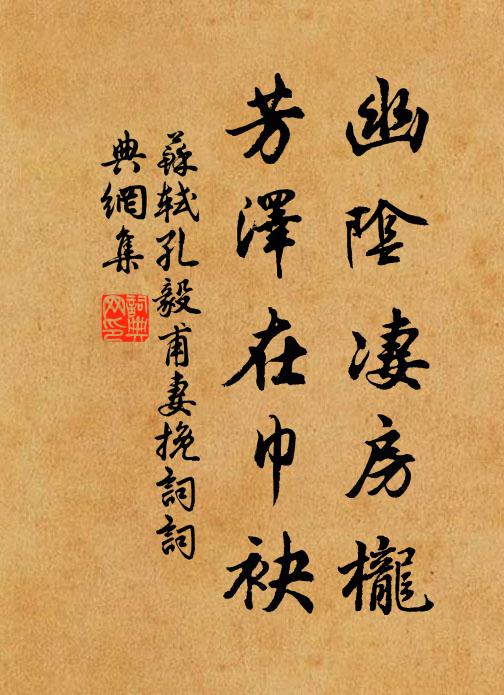 幽陰凄房櫳
芳澤在巾袂
蘇軾孔毅甫妻挽詞詞
典網集
詞典网印